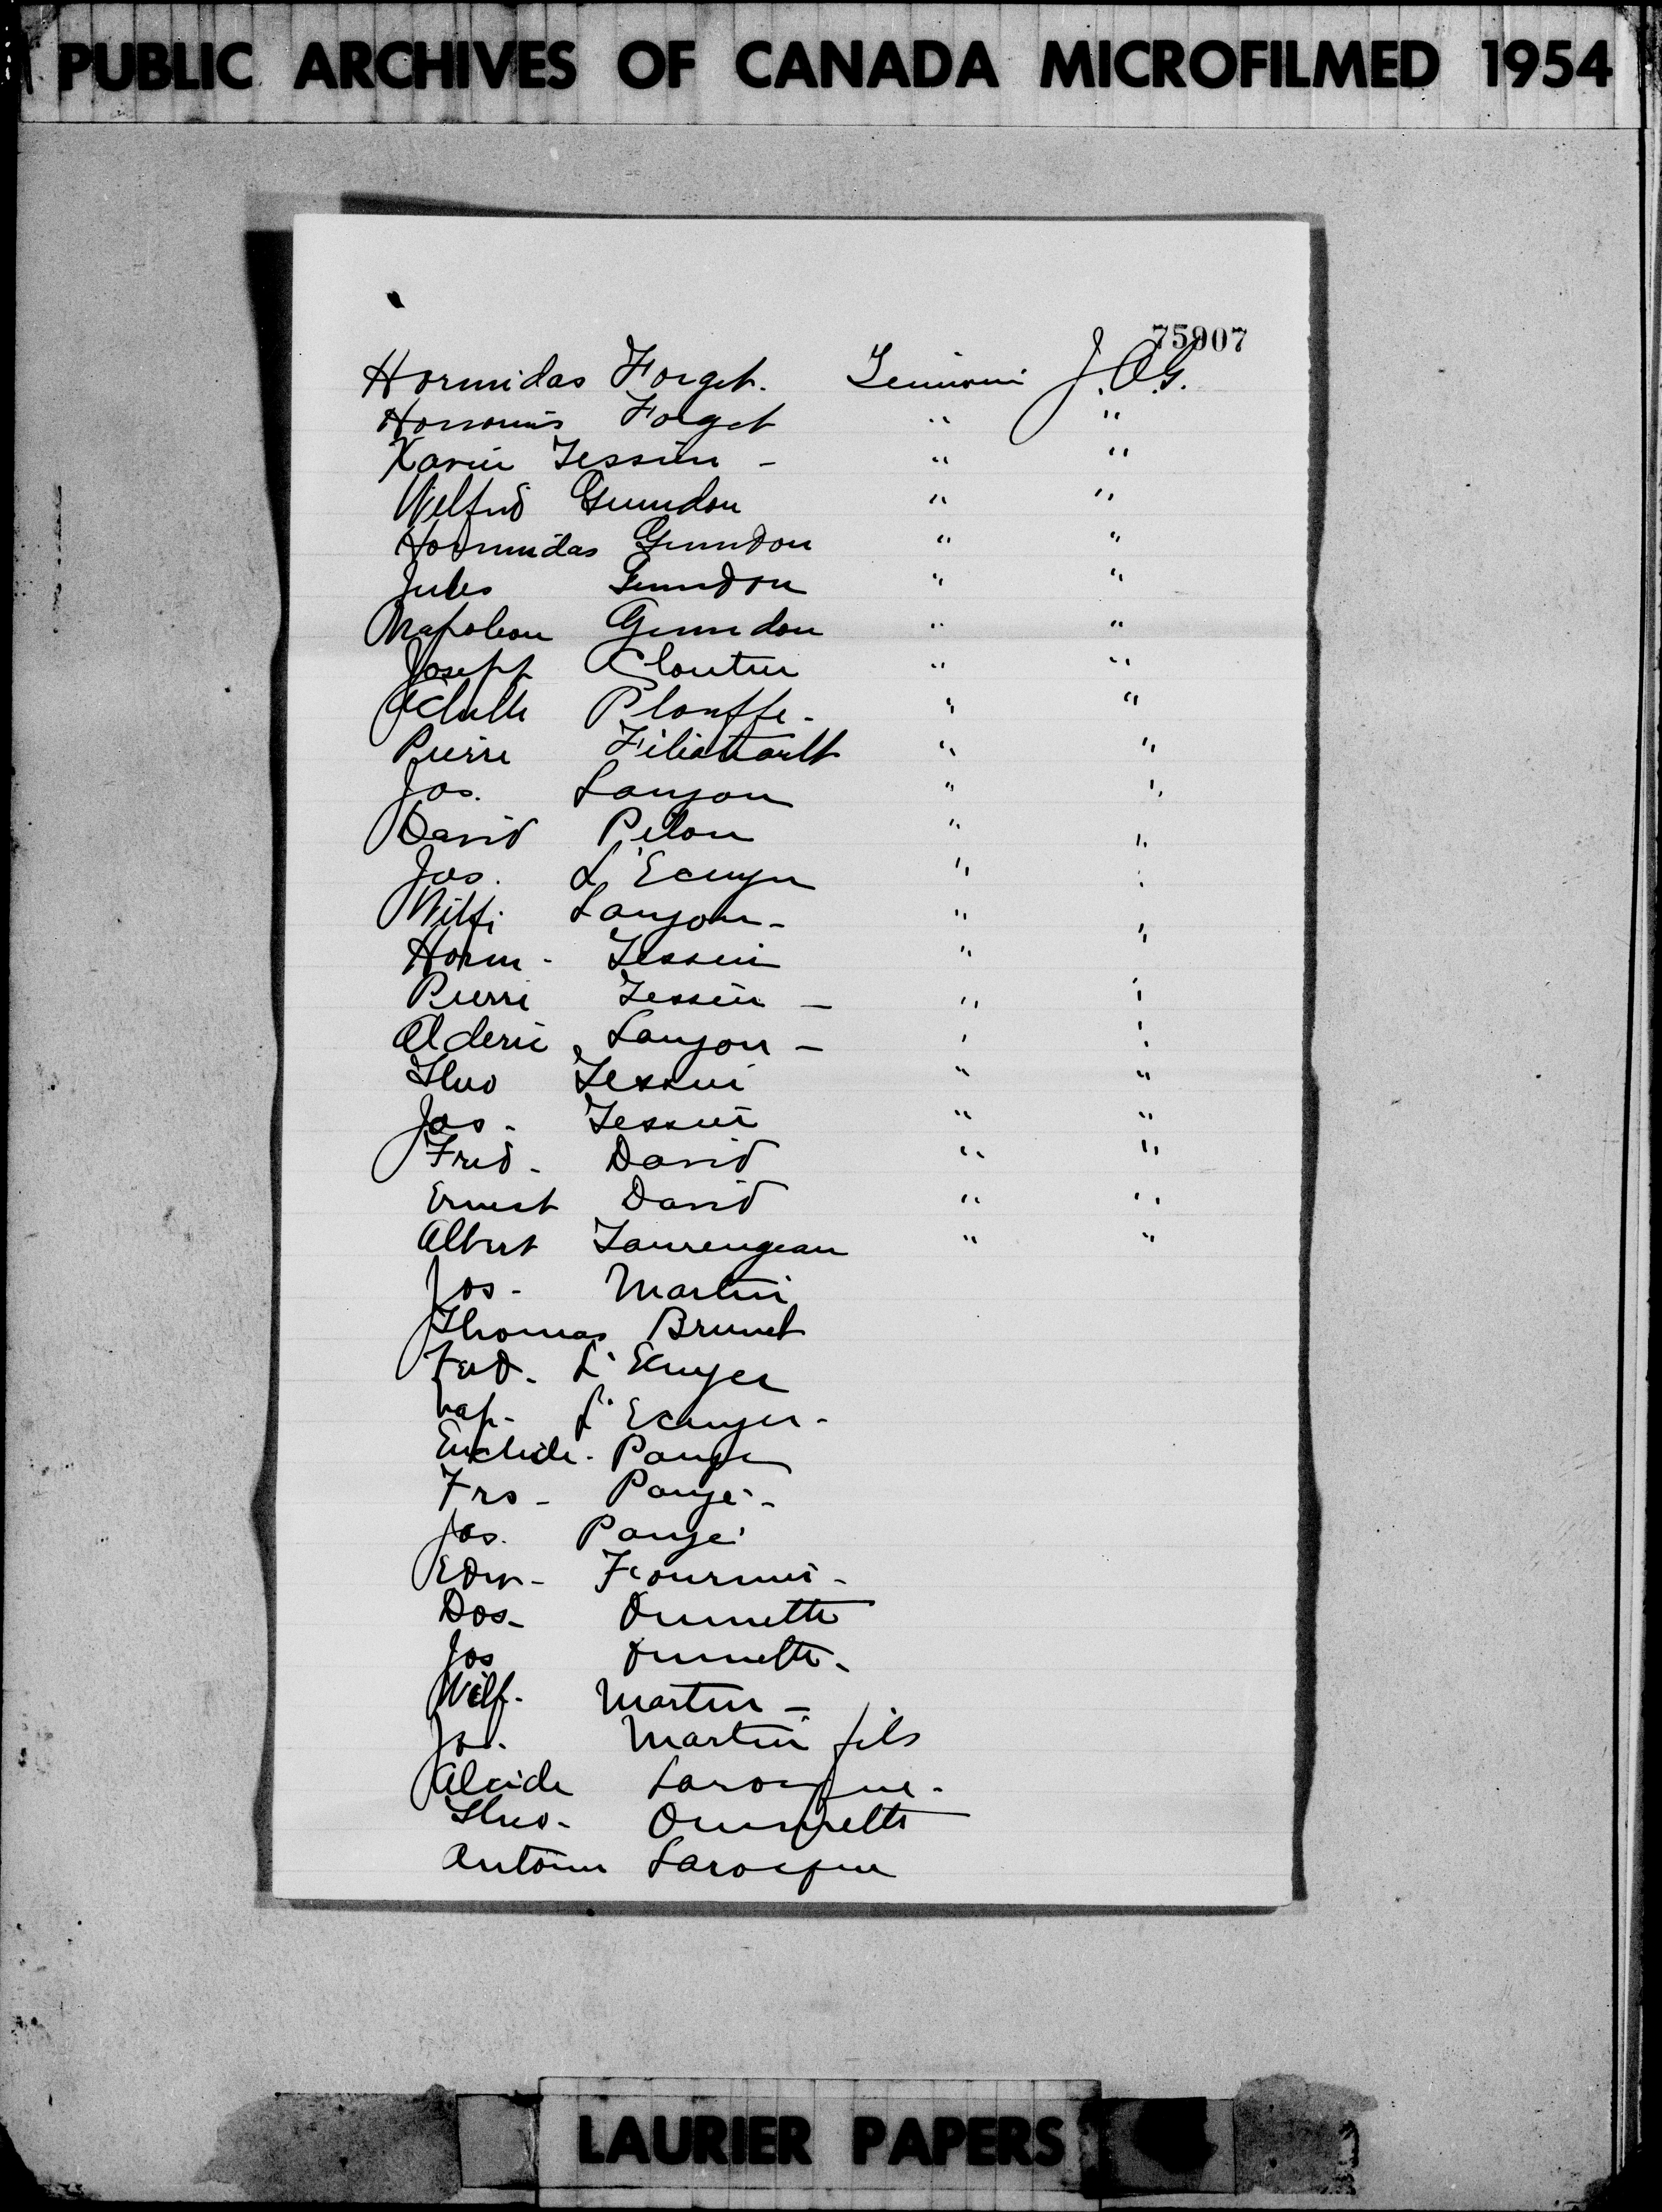 PUBLIC ARCHIVES OF CANADA MICROFILMED 1954
75907
Hormidas Forget. Temoin J.O.G.
Forget " "
Xavier Tessier - " "
Wilfrid Guindon " "
Hormidas Guindon " "
Jules Guindon " "
Napoleon Guindon " "
Joseph Cloutier " "
Achille Plouffe - " "
Pierre Filiatrault " "
Jos. Lauzon " "
David Pilon " "
Jos. L'Ecuyer " "
Wilf. Lauzon - " "
Horm - Tessier " "
Pierre Tessier - " "
Alderic Lauzon - " "
Theo Tessier " "
Jos - Tessier " "
Fred - David " "
Ernest David " "
Albert Taurengeau " "
Jos - Martin
Thomas Brunet
Ferd - L'Ecuyer
Nap - L'Ecuyer -
Euclide - Paugé
Frs - Paugé -
Jos. Paugé
Edm - Fournier -
Dos - Ouimette
Jos Ouimette -
Wilf - Martin -
Jos. Martin fils
Alcide Larocque -
Theo - Ouimette
Antoine Larocque
LAURIER PAPERS